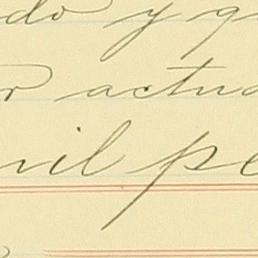 do y q
r actua
nil pe